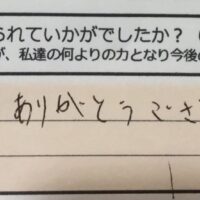 られていかがでしたか？
が、私達の何よりの力となり今後
ありがとうござ